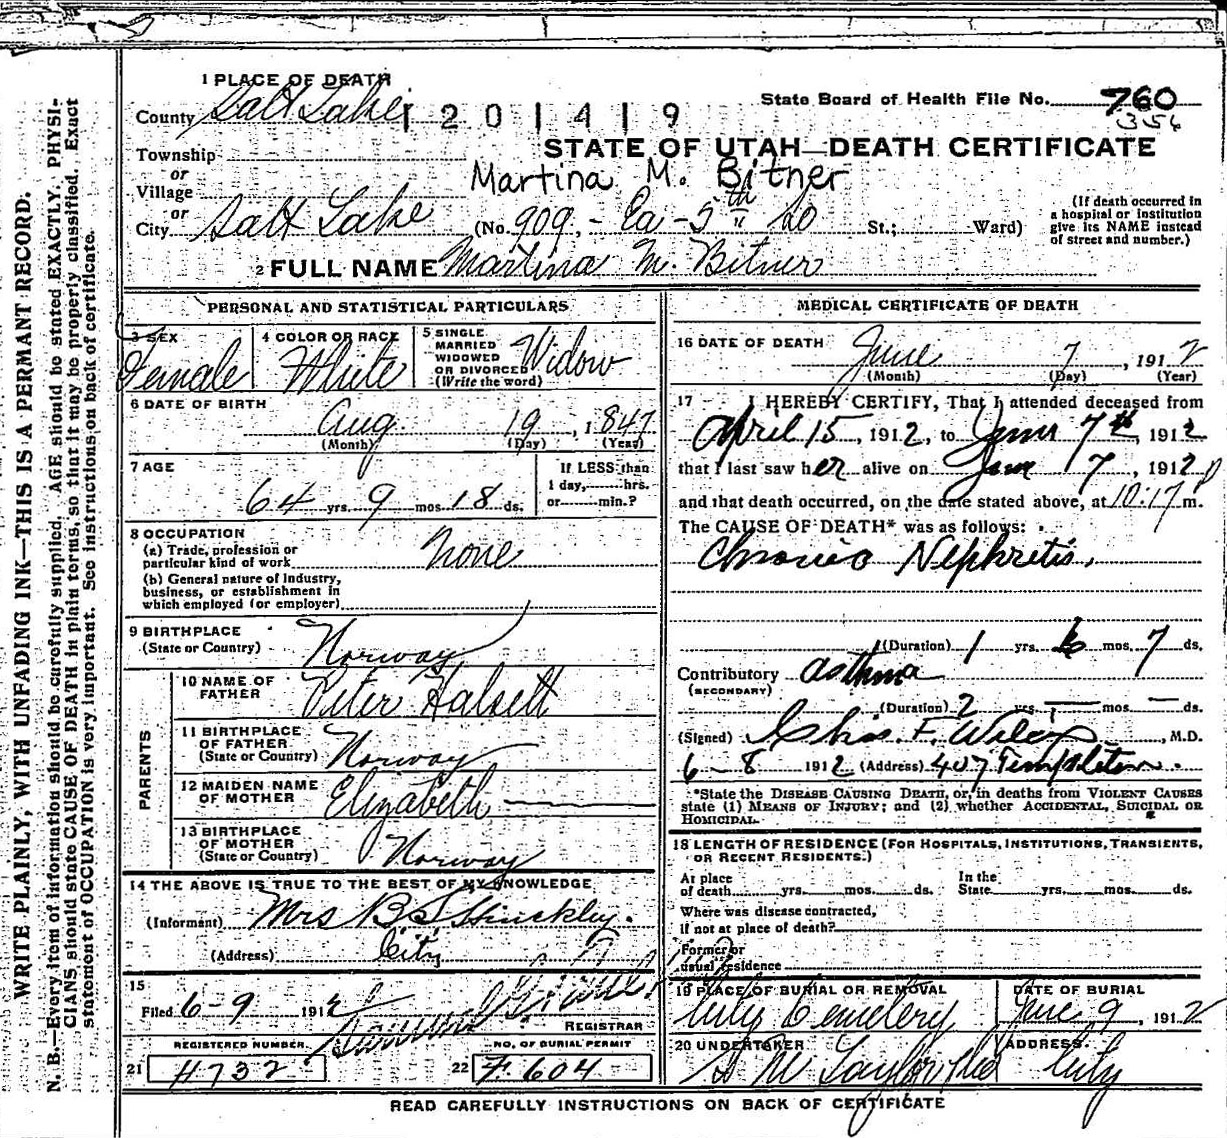 WRITE PLAINLY, WITH UNFADING INK—THIS IS A PERMANT RECORD.
N. B.—Every item of information should be carefully supplied. AGE should be stated EXACTLY. PHYSI-
CIANS should state CAUSE OF DEATH in plain terms, so that it may be properly classified. Exact
statement of OCCUPATION is very important. See instructions on back of certificate.
1 PLACE OF DEATH
County Salt Lake 1 2 0 1 4 1 9
State Board of Health File No. 760
356
STATE OF UTAH—DEATH CERTIFICATE
Township
or
Village
Martina M. Bitner
or
City Salt Lake (No. 909, - Ea - 5th So St.; Ward)
(If death occurred in
a hospital or institution
give its NAME instead
of street and number.)
2 FULL NAME Martina M. Bitner
PERSONAL AND STATISTICAL PARTICULARS
3 SEX Female
4 COLOR OR RACE White
5 SINGLE
MARRIED
WIDOWED
OR DIVORCED
(Write the word)
Widow
6 DATE OF BIRTH
Aug 19, 1847
(Month) (Day) (Year)
7 AGE
64 yrs. 9 mos. 18 ds.
If LESS than
1 day, hrs.
or min.?
8 OCCUPATION
(a) Trade, profession or
particular kind of work None
(b) General nature of Industry,
business, or establishment in
which employed (or employer)
9 BIRTHPLACE
(State or Country) Norway
PARENTS
10 NAME OF
FATHER Peter Halsett
11 BIRTHPLACE
OF FATHER
(State or Country) Norway
12 MAIDEN NAME
OF MOTHER Elizabeth
13 BIRTHPLACE
OF MOTHER
(State or Country) Norway
14 THE ABOVE IS TRUE TO THE BEST OF MY KNOWLEDGE
(Informant) Mrs B S Hinckley.
(Address) City
15
Filed 6-9 1912
REGISTRAR
REGISTERED NUMBER
21 4732
NO. OF BURIAL PERMIT
22 F 604
MEDICAL CERTIFICATE OF DEATH
16 DATE OF DEATH
June 7, 1912
(Month) (Day) (Year)
17 I HEREBY CERTIFY, That I attended deceased from
April 15, 1912, to June 7th, 1912
that I last saw her alive on June 7, 1912
and that death occurred, on the date stated above, at 10:17 P m.
The CAUSE OF DEATH* was as follows:
Chronic Nephretis.
(Duration) 1 yrs. 6 mos. 7 ds.
Contributory asthma
(SECONDARY)
(Duration) 2 yrs. — mos. — ds.
(Signed) Chas. F. Wilcox, M.D.
6-8 1912 (Address) 407 Templeton.
*State the DISEASE CAUSING DEATH, or, in deaths from VIOLENT CAUSES
state (1) MEANS OF INJURY; and (2) whether ACCIDENTAL, SUICIDAL OR
HOMICIDAL.
18 LENGTH OF RESIDENCE (FOR HOSPITALS, INSTITUTIONS, TRANSIENTS,
OR RECENT RESIDENTS.)
At place
of death yrs. mos. ds.
In the
State yrs. mos. ds.
Where was disease contracted,
if not at place of death?
Former or
usual residence
19 PLACE OF BURIAL OR REMOVAL
City Cemetery
DATE OF BURIAL
June 9, 1912
20 UNDERTAKER
S M Taylor &Co
ADDRESS
City
READ CAREFULLY INSTRUCTIONS ON BACK OF CERTIFICATE